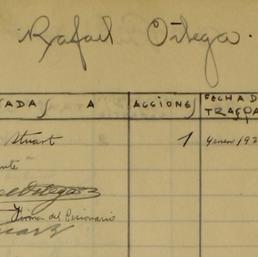 Rafael Ortega.
ADAS A ACCIONES FECHA D
TRASPA
Stuart 1 4 enero 192
nte
Firma del Cesionario